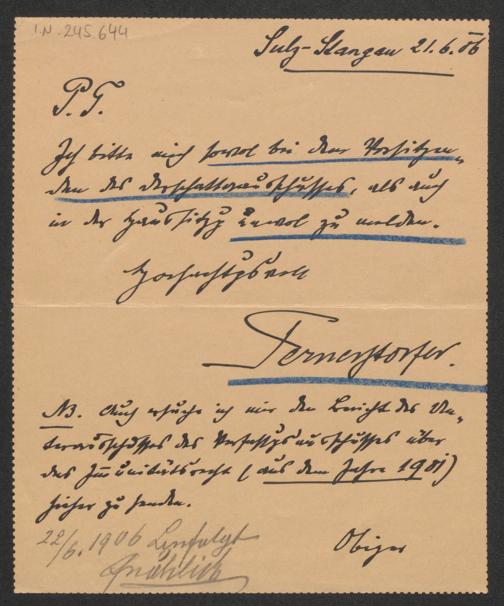 I.N. 245.644
Sulz-Stangau 21.6.06
P. T.
Ich bitte mich sowol bei dem Vorsitzen-
den des ausschusses, als auch
in der Haussitzg zu melden.
Hochachtungsvoll
Pernerstorfer.
NB. Auch ersuche ich mir den Bericht des Un-
terausschusses des Verfassgsausschusses über
das Immunitätsrecht (aus dem Jahre 1901)
hieher zu senden.
Obiger
22/6. 1906